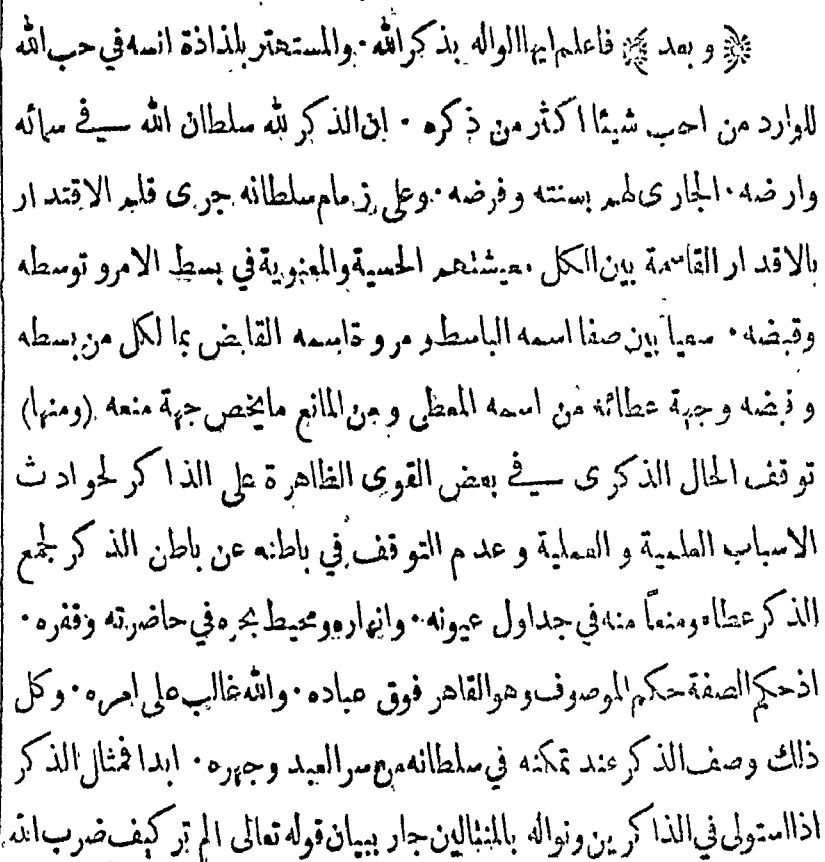 ﴿ و بعد ﴾ فاعلم ايها الواله بذكر الله · والمستهتر بلذاذة انسه في حب الله
للوارد من احب شيئا اكثر من ذكره · ان الذكر لله سلطان الله في سمائه
وارضه · الجارى لهم بسنته وفرضه · وعلى زمام سلطانه جرى قلم الاقتدار
بالاقدار القاسمة بين الكل معيشتهم الحسية والمعنوية في بسط الامر و توسطه
وقبضه · سعياً بين صفا اسمه الباسط و مروة اسمه القابض بما لكل من بسطه
و قبضه وجهة عطائه من اسمه المعطى و من المانع مايخص جهة منعه (ومنها)
توقف الحال الذكرى في بعض القوى الظاهرة على الذاكر لحوادث
الاسباب العلمية و العملية و عدم التوقف في باطنه عن باطن الذكر لجمع
الذكر عطاء ومنعاً منه في جداول عيونه · وانهاره ومحيط بحره في حاضرته وقفره ·
اذ حكم الصفة حكم الموصوف وهو القاهر فوق عباده · والله غالب على امره · وكل
ذلك وصف الذكر عند تمكنه في سلطانه من سر العبد وجهره · ابدا فمثال الذكر
اذا استولى في الذاكرين ونواله بالمنثالين جار ببيان قوله تعالى الم تر كيف ضرب الله